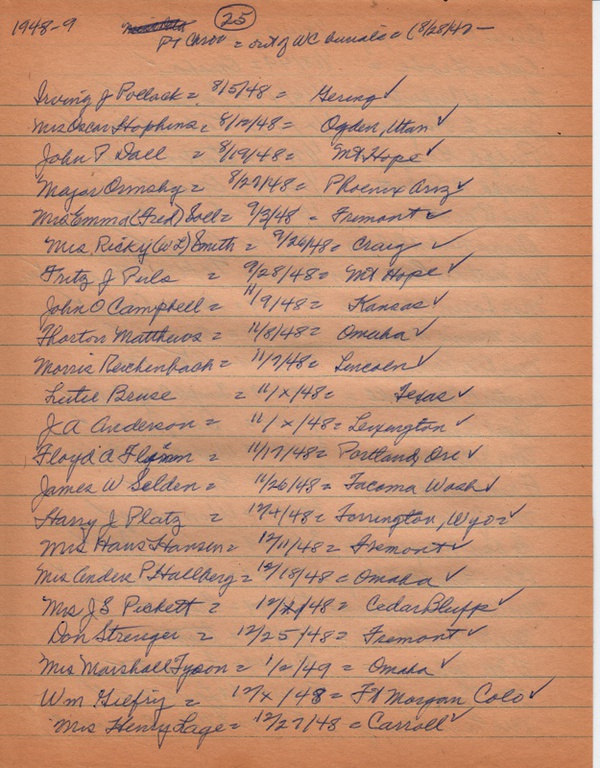 1948-9 (25)
= out of WC burials = (8/28/47 -
Irving J Pollack = 8/5/48 = Gering ✓
Mrs Oscar Hopkins = 8/12/48 = Ogden, Utah ✓
John P Dall = 8/19/48 = Mt Hope ✓
Major Ormsby = 8/27/48 = Phoenix Ariz ✓
Mrs Emma (Fred) Soll = 9/3/48 = Fremont ✓
Mrs Ricky (W L) Smith = 9/26/48 = Craig ✓
Fritz J Puls = 9/28/48 = Mt Hope ✓
John O Campbell = 11/9/48 = Kansas ✓
Thorton Matthews = 11/8/48 = Omaha ✓
Morris Reichenbach = 11/7/48 = Lincoln ✓
Bruse = 11/x/48 = Texas ✓
J A Anderson = 11/x/48 = Lexington ✓
Floyd A Flamm = 11/17/48 = Portland, Ore ✓
James W Selden = 11/26/48 = Tacoma Wash ✓
Harry J Platz = 12/4/48 = Torrington, Wyo ✓
Mrs Hans Hansen = 12/11/48 = Fremont ✓
Mrs Anders P Hallberg = 12/18/48 = Omaha ✓
Mrs J S Pickett = 12/21/48 = Cedar Bluffs ✓
Don Strenger = 12/25/48 = Fremont ✓
Mrs Marshall Tyson = 1/2/49 = Omaha ✓
Wm Gilfry = 12/x/48 = Ft Morgan Colo ✓
Mrs Henry Lage = 12/27/48 = Carroll ✓